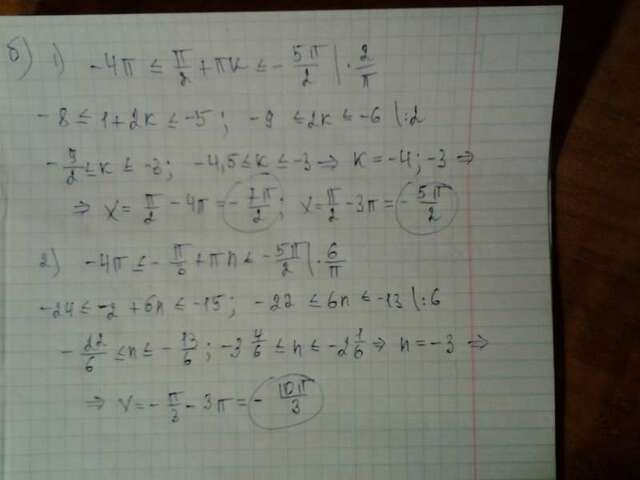 б) 1) -4π ≤ π/2 + πk ≤ - 5π/2 | · 2/π
-8 ≤ 1+2k ≤ -5 ; -9 ≤ 2k ≤ -6 |:2
-9/2 ≤ k ≤ -3 ; -4,5 ≤ k ≤ -3 ⇒ k = -4 ; -3 ⇒
⇒ x = π/2 - 4π = -7π/2 ; x = π/2 - 3π = -5π/2
2) -4π ≤ - π/6 + πn ≤ -5π/2 | · 6/π
-24 ≤ -2 + 6n ≤ -15 ; -22 ≤ 6n ≤ -13 |:6
-22/6 ≤ n ≤ -13/6 ; -3 4/6 ≤ n ≤ -2 1/6 ⇒ n = -3 ⇒
⇒ x = - π/3 - 3π = - 10π/3